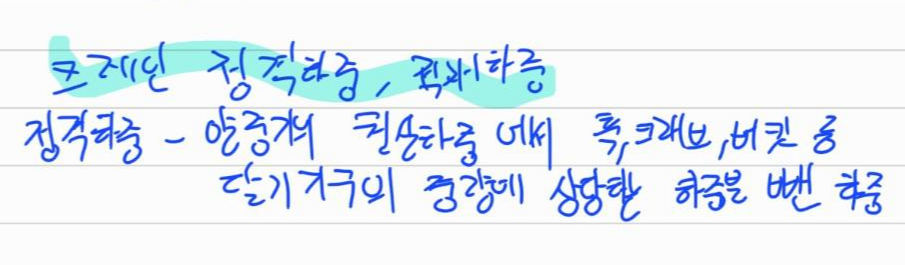 크레인 정격하중, 적재하중
정격하중 - 양중기의 권상하중에서 훅,크래브,버킷 등
달기기구의 중량에 상당한 하중을 뺀 하중